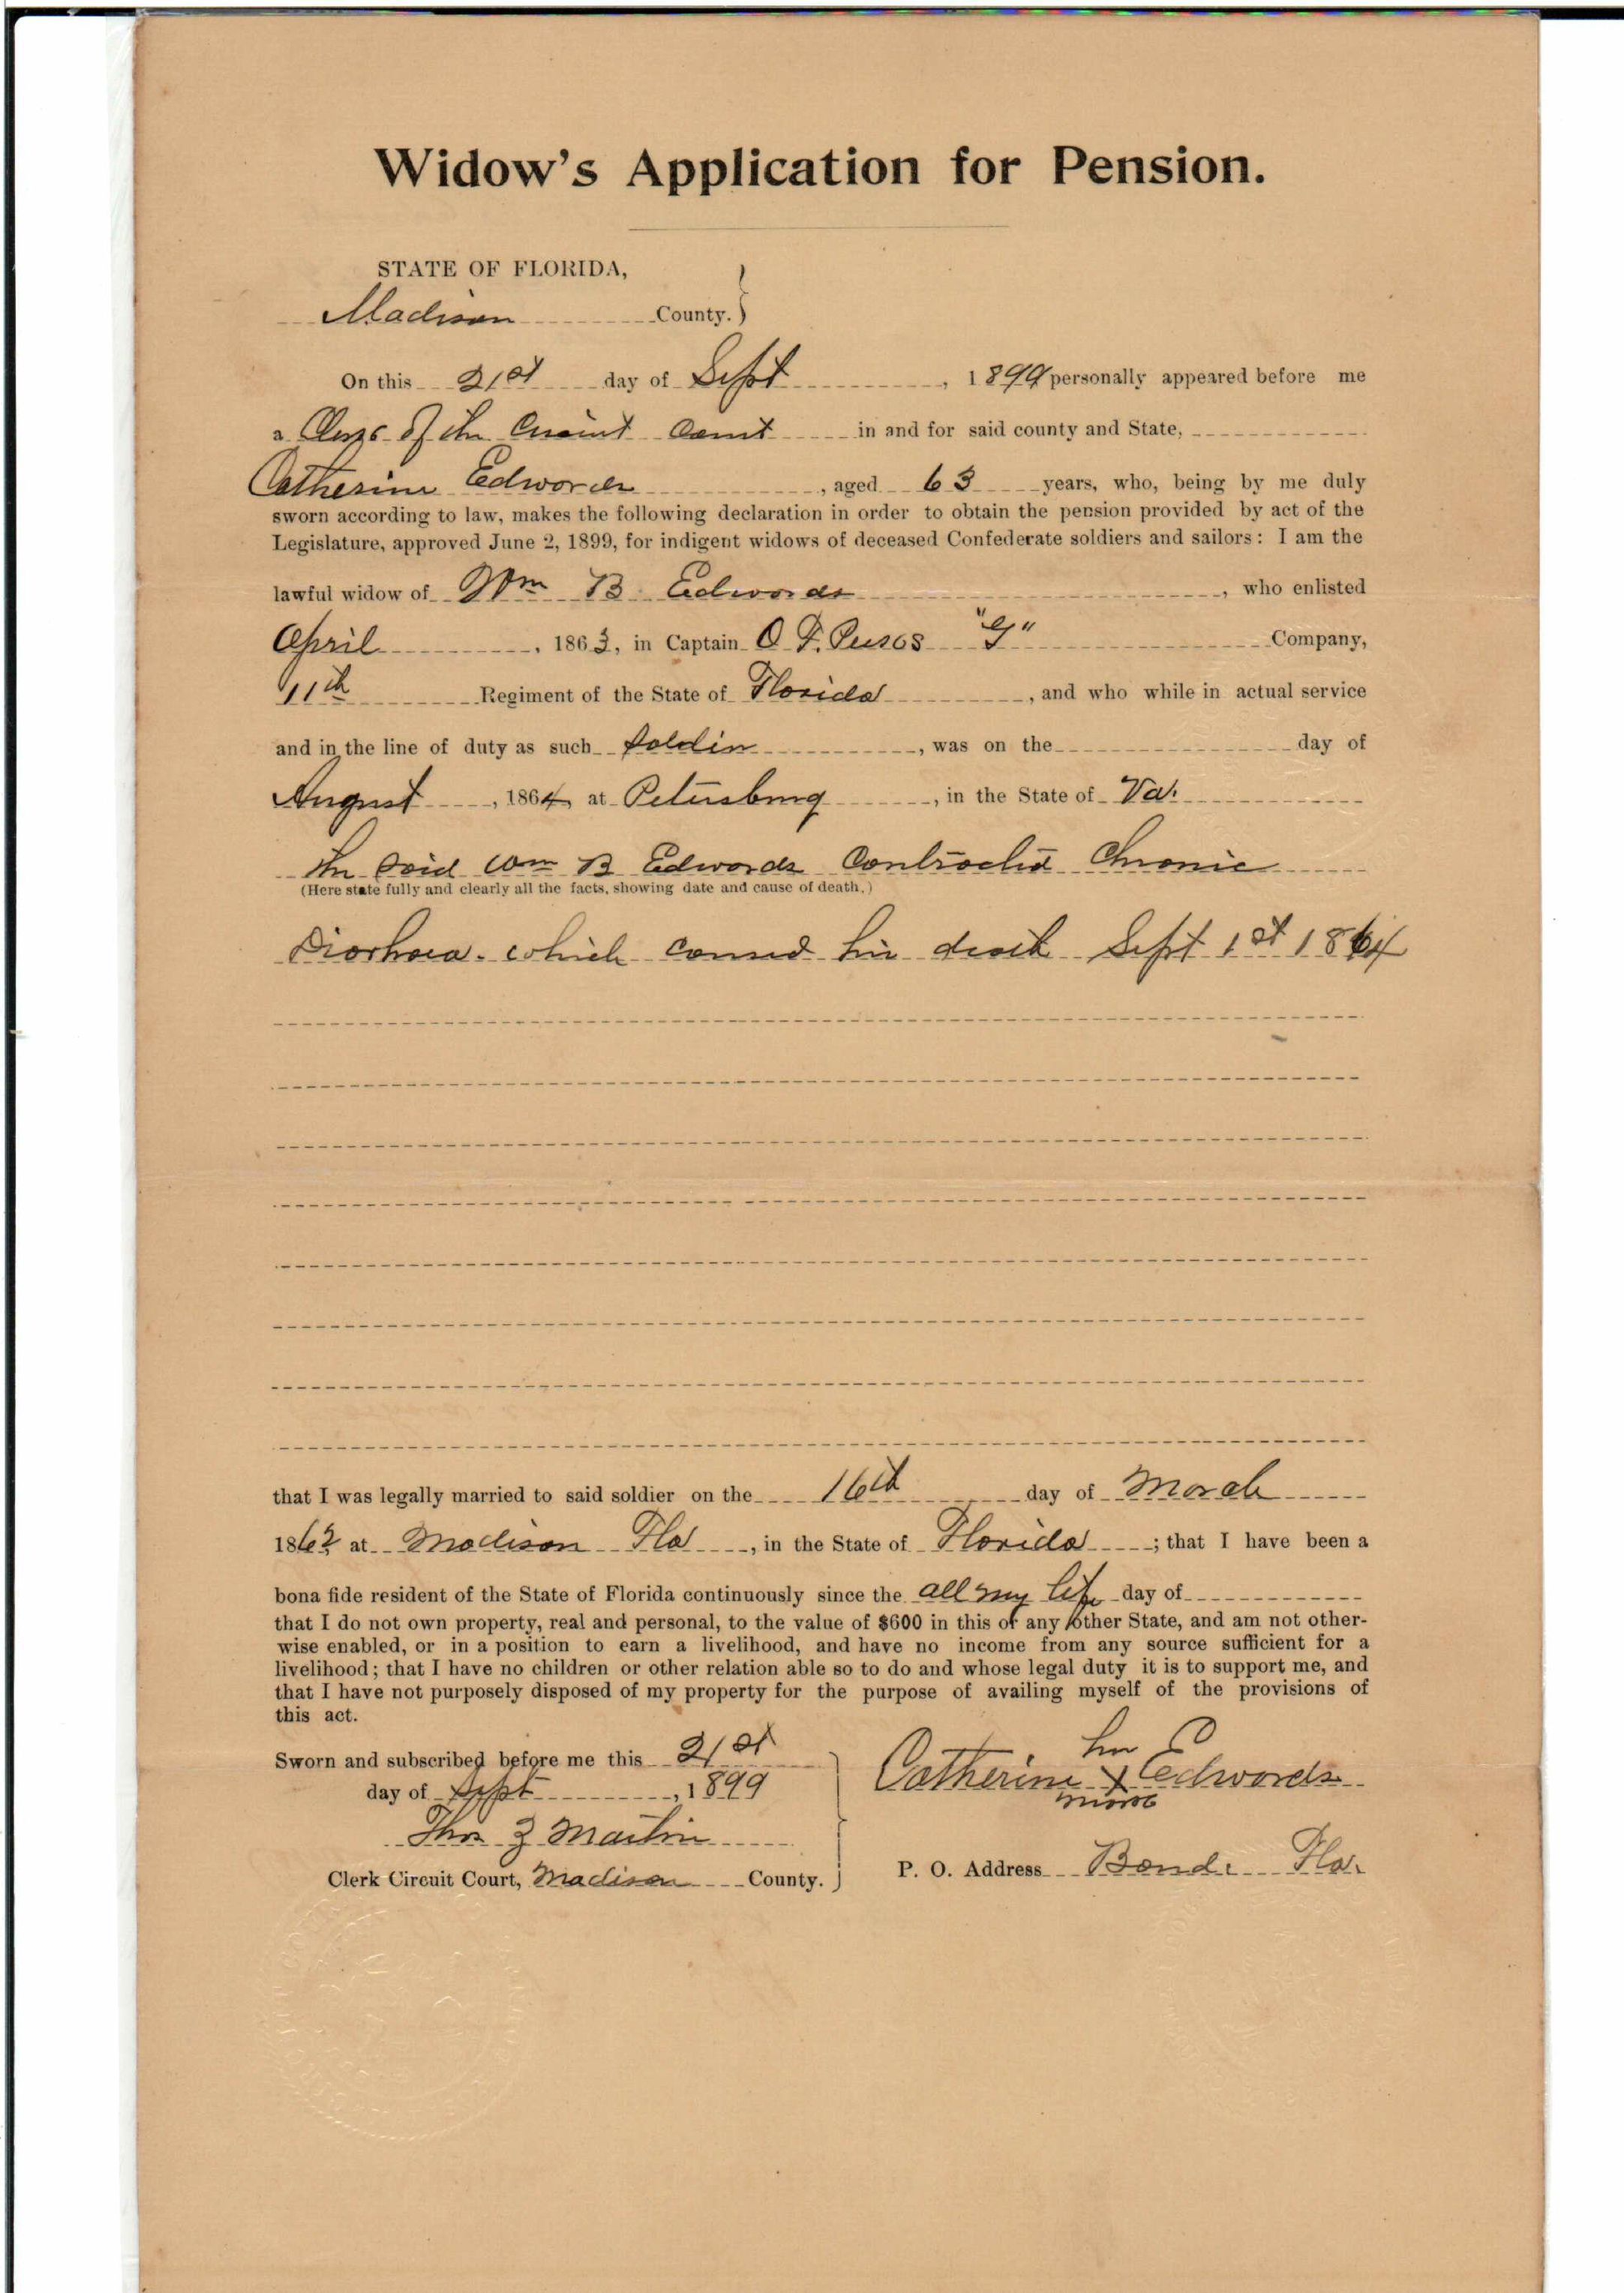 Widow's Application for Pension.
STATE OF FLORIDA,
Madison County.
On this 21st day of Sept, 1899 personally appeared before me
a Clerk of the Circuit Court in and for said county and State,
Catherine Edwards, aged 63 years, who, being by me duly
sworn according to law, makes the following declaration in order to obtain the pension provided by act of the
Legislature, approved June 2, 1899, for indigent widows of deceased Confederate soldiers and sailors: I am the
lawful widow of Wm B Edwards, who enlisted
April, 1863, in Captain O. F. "G" Company,
11th Regiment of the State of Florida, and who while in actual service
and in the line of duty as such soldier, was on the day of
August, 1864, at Petersburg, in the State of Va.
the said Wm B Edwards Contracted Chronic
(Here state fully and clearly all the facts, showing date and cause of death.)
Diorhoea. which caused his death Sept 1st 1864
that I was legally married to said soldier on the 16th day of March
1862 at Madison Fla, in the State of Florida; that I have been a
bona fide resident of the State of Florida continuously since the all my life day of
that I do not own property, real and personal, to the value of $600 in this or any other State, and am not other-
wise enabled, or in a position to earn a livelihood, and have no income from any source sufficient for a
livelihood; that I have no children or other relation able so to do and whose legal duty it is to support me, and
that I have not purposely disposed of my property for the purpose of availing myself of the provisions of
this act.
Sworn and subscribed before me this 21st
day of Sept, 1899
Thos Z Martin
Clerk Circuit Court, Madison County.
her
Catherine X Edwards
mark
P. O. Address Bond. Fla.